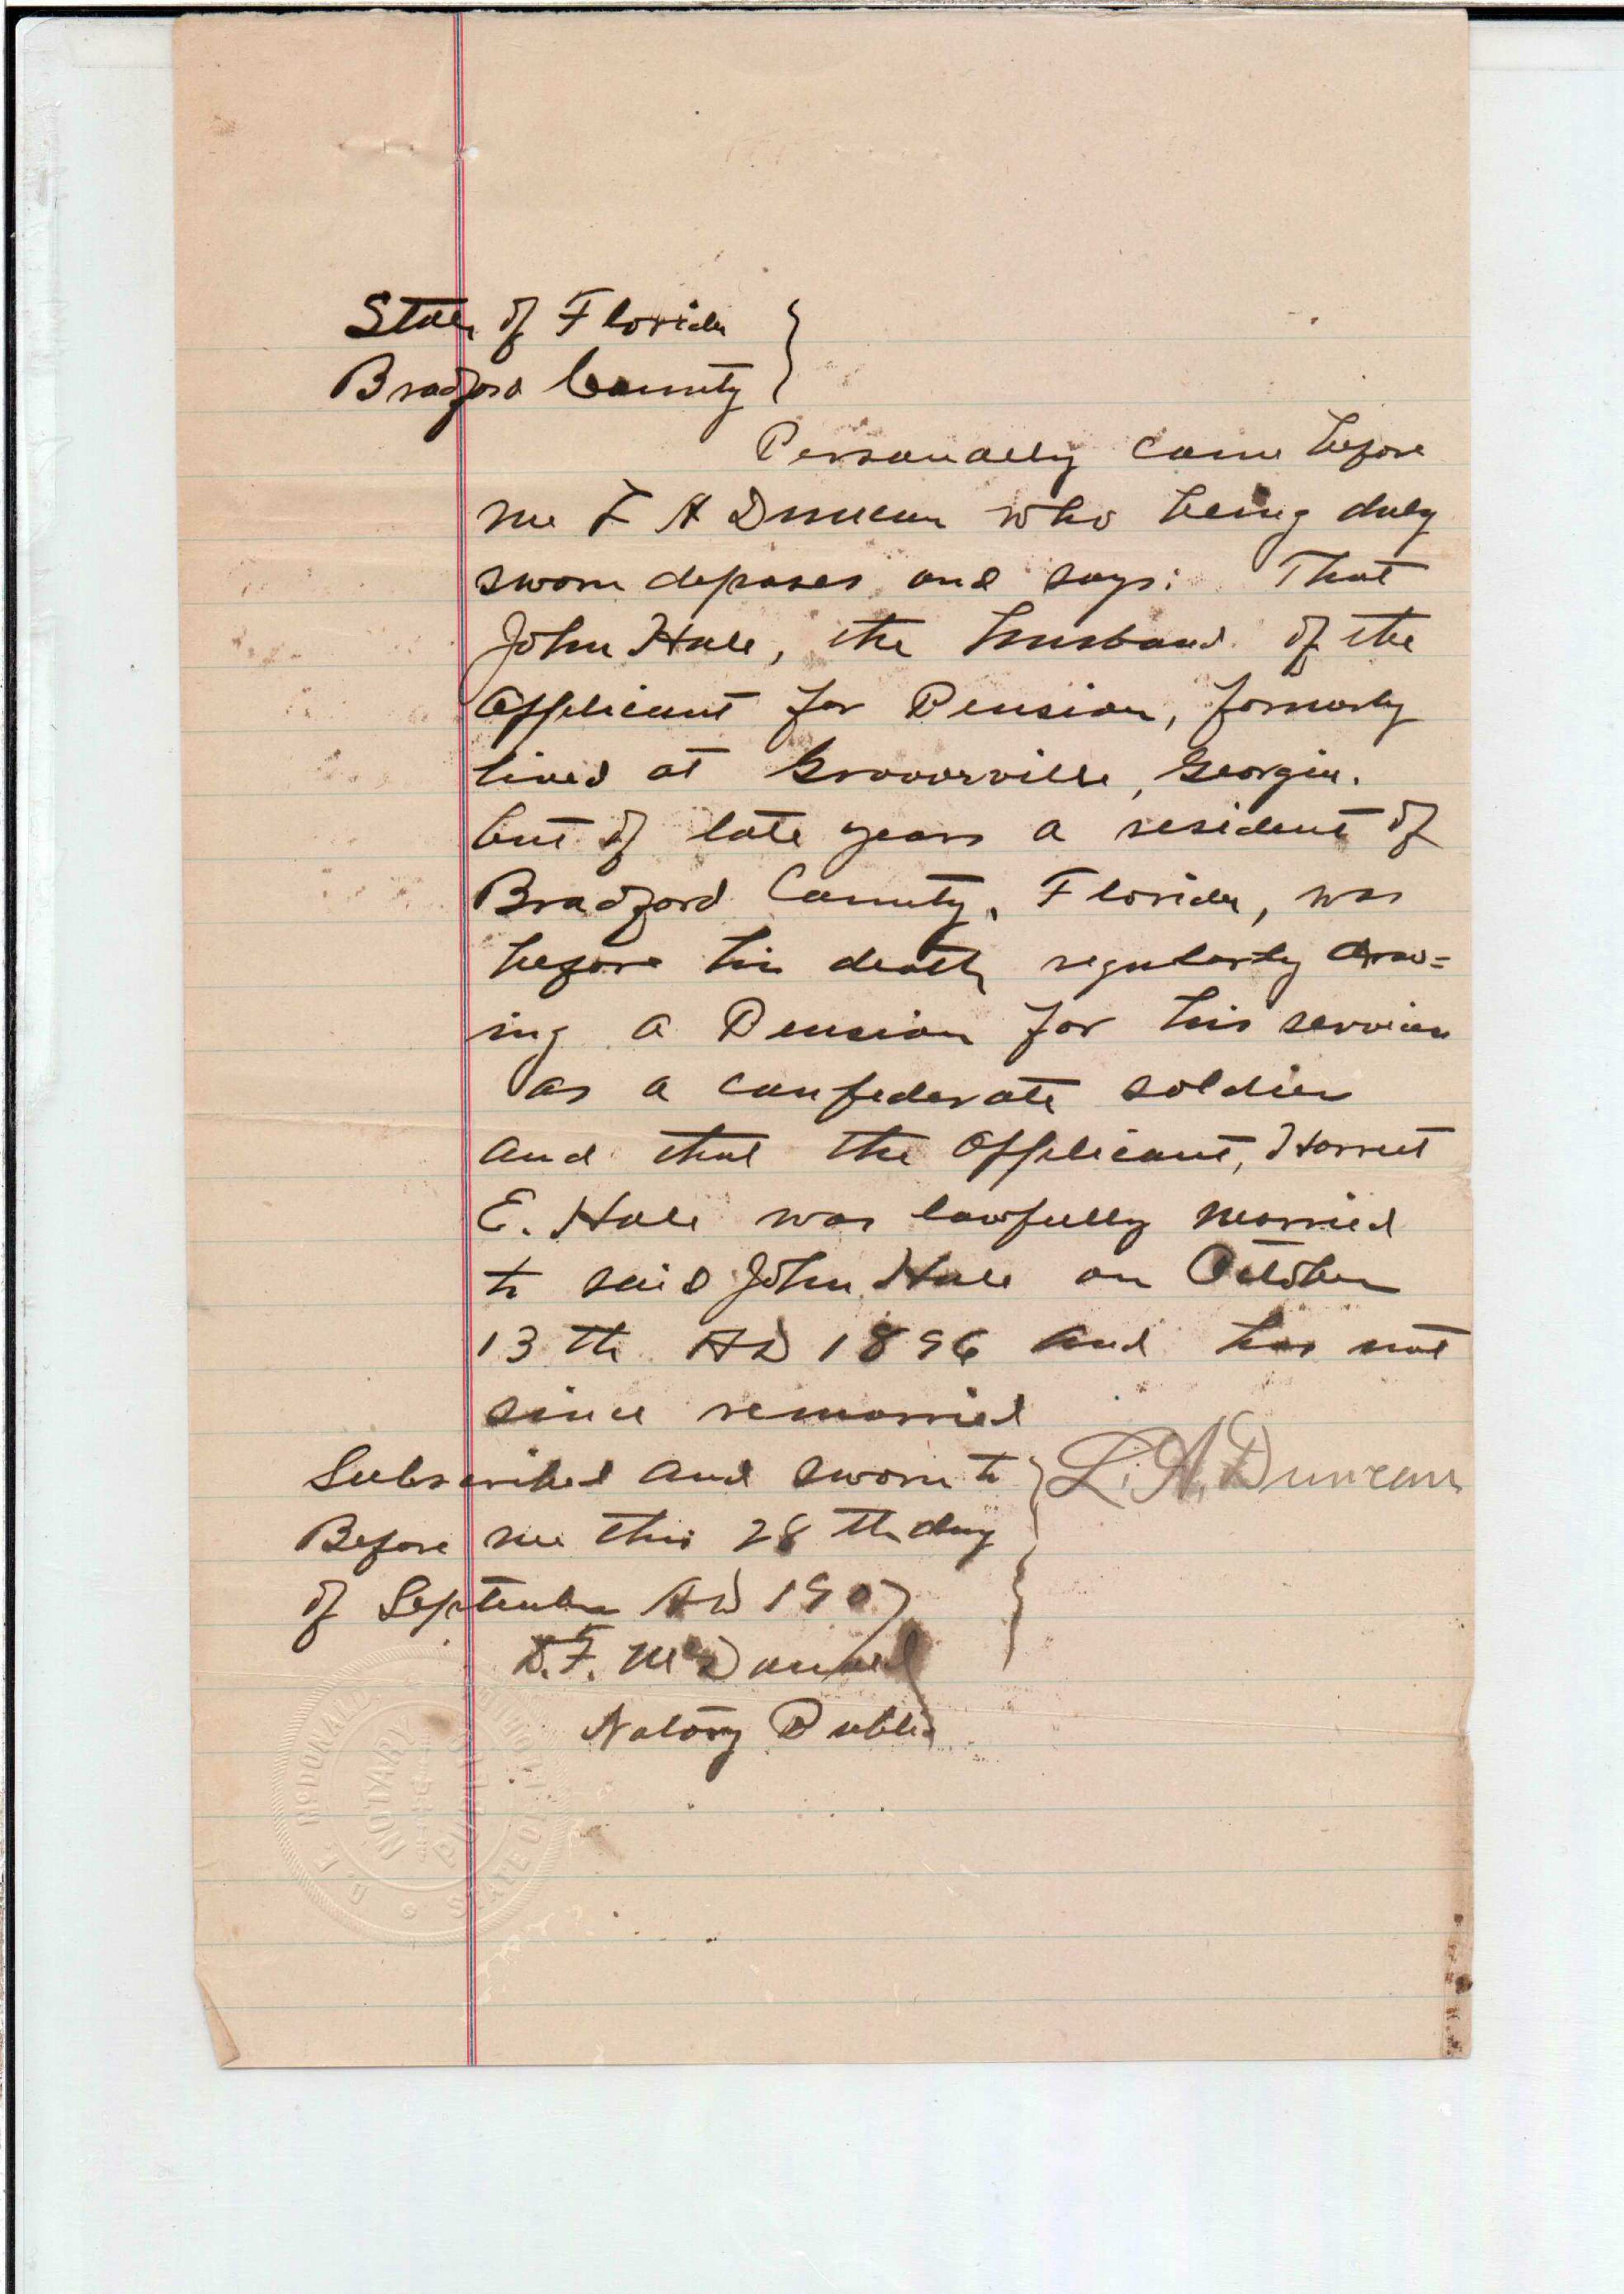 State of Florida
Bradford County
Personally came before
me L A Duncan who being duly
sworn deposes and says: That
John Hale, the husband of the
applicant for Pension, formerly
lived at Grooverville, Georgia.
but of late years a resident of
Bradford County, Florida, was
before his death regularly draw=
ing a Pension for his services
as a confederate soldier
and that the applicant, Harriet
E. Hale was lawfully married
to said John Hale on October
13th AD 1896 and has not
since remarried
Subscribed and sworn to L. A. Duncan
Before me this 28th day
of September AD 1907
D. F. McDonald
Notary Public
D. F. McDONALD
NOTARY PUBLIC
STATE OF FLORIDA